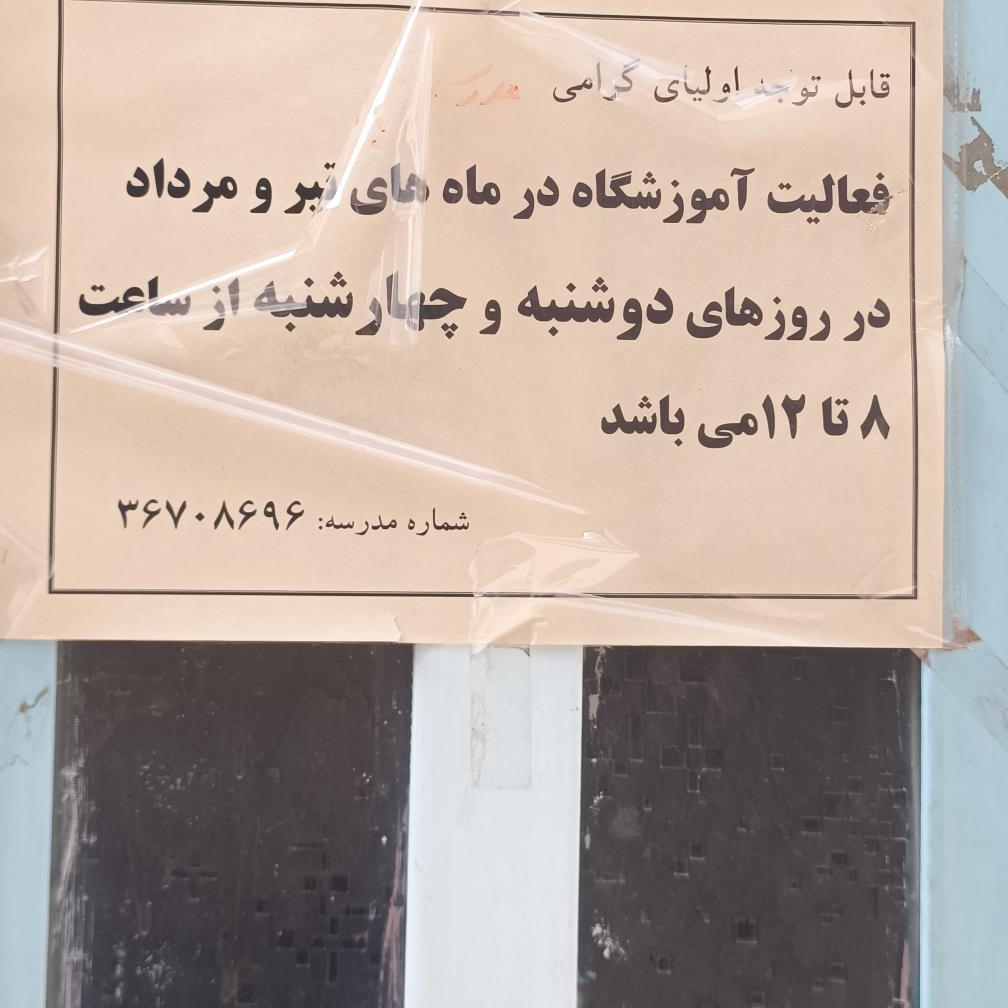 قابل توجه اولیای گرامی
فعالیت آموزشگاه در ماه های تیر و مرداد
در روزهای دوشنبه و چهارشنبه از ساعت
۸ تا ۱۲می باشد
شماره مدرسه: ۳۶۷۰۸۶۹۶